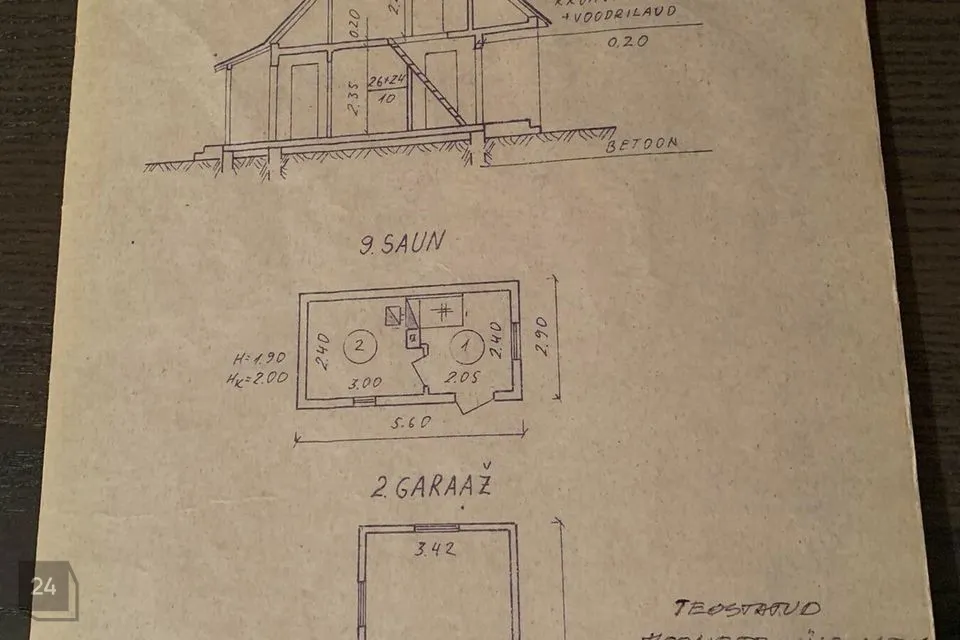 +VOODRILAUD
0,20
0,20
2,35
26+24
10
BETOON
9. SAUN
2.40
2
1
2.40
2.90
H=1.90
HK=2.00
3.00
2.05
5.60
2. GARAAŽ
3.42
TEOSTATUD
24